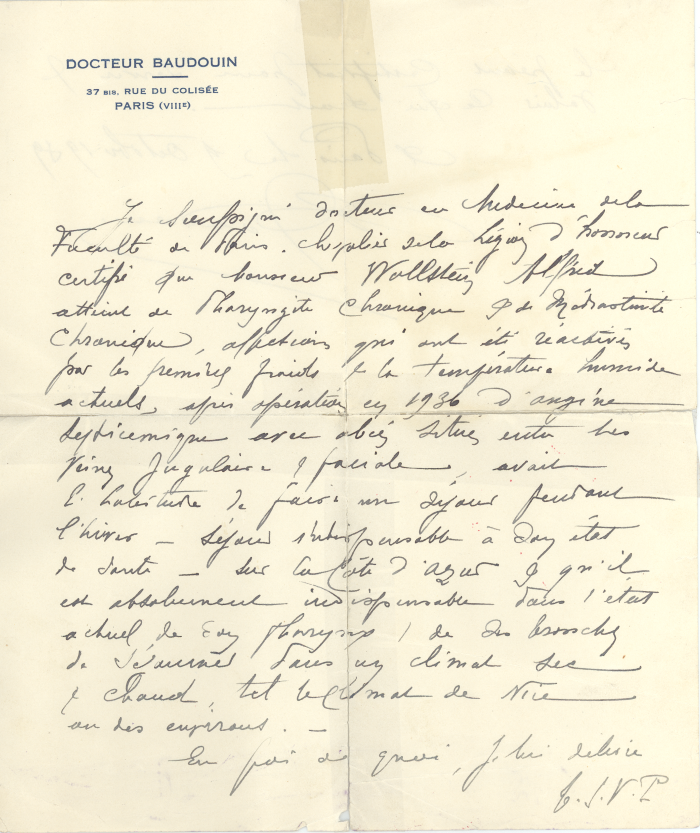 DOCTEUR BAUDOUIN
37 BIS, RUE DU COLISÉE
PARIS (VIIIE)
Je soussigné docteur en Médecine de la
Faculté de Paris. Chevalier de la Légion d'honneur
certifie que Monsieur Wollstein Alfred
atteint de Pharyngite Chronique & de Médiastinite
Chronique, affections qui ont été réactivés
par les premiers froids & la température humide
actuels, après opération en 1936 d'angine
septicémique avec abcès situés entre les
Veines Jugulaire & faciale, avait
l'habitude de faire un séjour pendant
l'hiver — séjour indispensable à son état
de santé — sur la Côte d'Azur & qu'il
est absolument indispensable dans l'état
actuel de son Pharynx & de ses bronches
de séjourner dans un climat sec
& chaud, tel le climat de Nice
ou des environs. —
En foi de quoi, je lui délivre
T.S.V.P